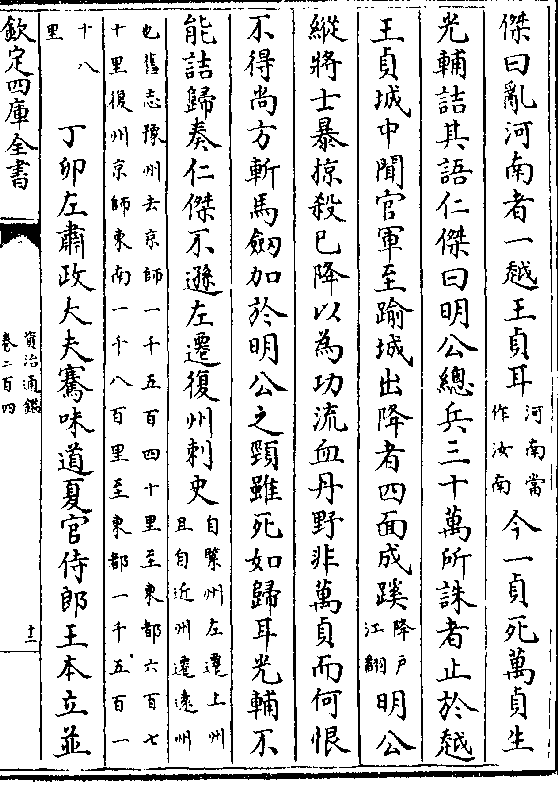 傑曰亂河南者一越王貞耳河南當作汝南今一貞死萬貞生
光輔詰其語仁傑曰明公總兵三十萬所誅者止於越
王貞城中聞官軍至踰城出降者四面成蹊降戶江翻明公
縱將士暴掠殺已降以為功流血丹野非萬貞而何恨
不得尚方斬馬劔加於明公之頸雖死如歸耳光輔不
能詰歸奏仁傑不遜左遷復州刺史自緊州左遷上州且自近州遷遠州
也舊志豫州去京師一千五百四十里至東都六百七十里復州京師東南一千八百里至東都一千五百一
十八里丁卯左肅政大夫騫味道夏官侍郎王本立並
欽定四庫全書
資治通鑑
卷二百四
十二